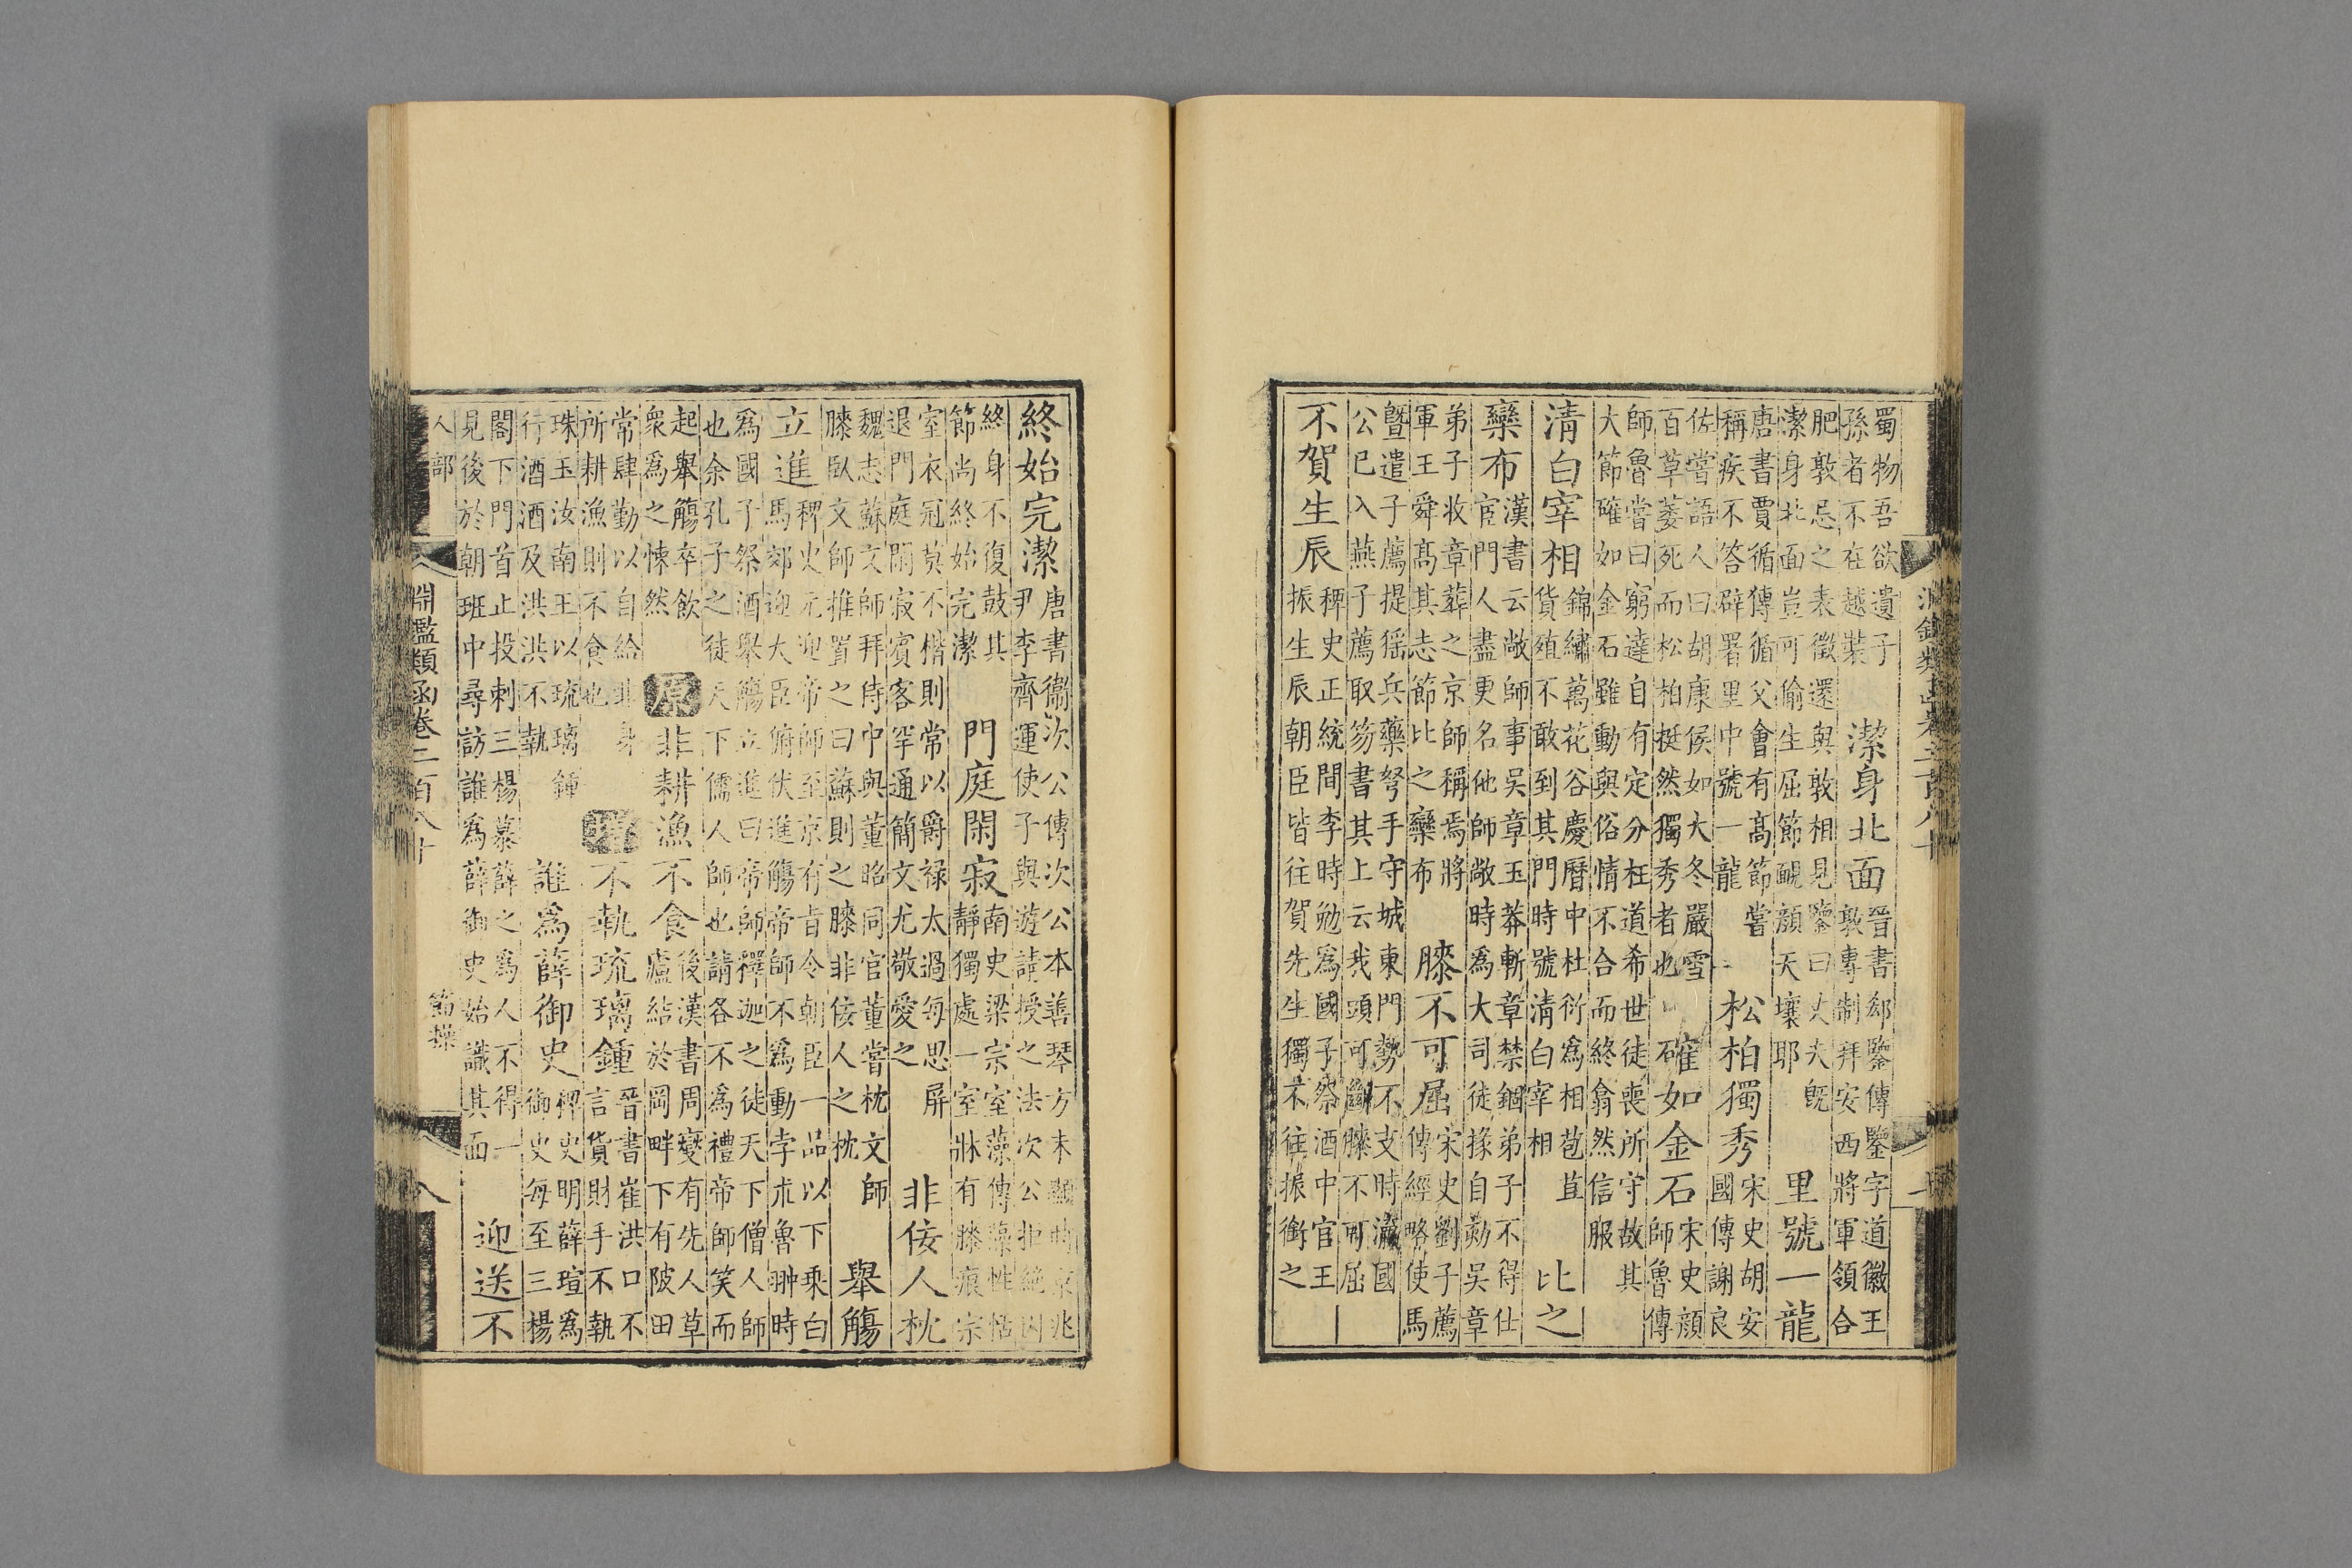 蜀物吾欲遺子
孫者不在越裝
潔身北面
晉書郄鑒傳鑒字道徽王
敦專制拜安西將軍領合
肥敦忌之表徵還與敦相見鑒曰丈夫既
潔身北面豈可偷生屈節靦顏天壤耶
里號一龍
唐書賈循傳循父會有高節嘗
稱疾不答辟署里中號一龍
松柏獨秀
宋史胡安
國傳謝良
佐嘗語人曰胡康侯如大冬嚴雪
百草萎死而松柏挺然獨秀者也
確如金石
宋史顏
師魯傳
師魯嘗曰窮達自有定分枉道希世徒喪所守故其
大節確如金石雖動與俗情不合而終翕然信服
清白宰相
錦繡萬花谷慶曆中杜衍為相苞苴
貨殖不敢到其門時號清白宰相
比之
欒布
漢書云敞師事吳章玉莽斬章禁錮弟子不得仕
宦門人盡更名他師敞時為大司徒掾自劾吳章
弟子收章葬之京師稱焉將
軍王舜高其志節比之欒布
膝不可屈
宋史劉子薦
傳經略使馬
曁遣子薦提猺兵藥弩手守城東門勢不支時瀛國
公已入燕子薦取笏書其上云我頭可斷膝不可屈
不賀生辰
稗史正統間李時勉為國子祭酒中官王
振生辰朝臣皆往賀先生獨不往振銜之
終始完潔
唐書衞次公傳次公本善琴方未顯時京兆
尹李齊運使子與遊請授之法次公拒絕因
終身不復鼓其
節尚終始完潔
門庭閑寂
南史梁宗室藻傳藻性恬
靜獨處一室牀有膝痕宗
室衣冠莫不楷則常以爵祿太過每思屏
退門庭閑寂賓客罕通簡文尤敬愛之
非佞人枕
魏志蘇文師拜侍中與董昭同官董嘗枕文師
膝臥文師推置之曰蘇則之膝非佞人之枕
舉觴
立進
稗史元迎帝師至京有旨令朝臣一品以下乘白
馬郊迎大臣俯伏進觴帝師不為動孛朮魯翀時
為國子祭酒舉觴立進曰帝師釋迦之徒天下僧人師
也余孔子之徒天下儒人師也請各不為禮帝師笑而
起舉觴卒飲
衆為之悚然
原
非耕漁不食
後漢書周燮有先人草
廬結於岡畔下有陂田
常肆勤以自給非身
所耕漁則不食也
增
不執琉璃鍾
晉書崔洪口不
言貨財手不執
珠玉汝南王以琉璃鍾
行酒酒及洪洪不執
誰為薛御史
稗史明薛瑄為
御史每至三楊
閣下門首止投刺三楊慕薛之為人不得一
見後於朝班中尋訪誰為薛御史始識其面
迎送不
人部
淵鑑類函卷二百八十
節操
八